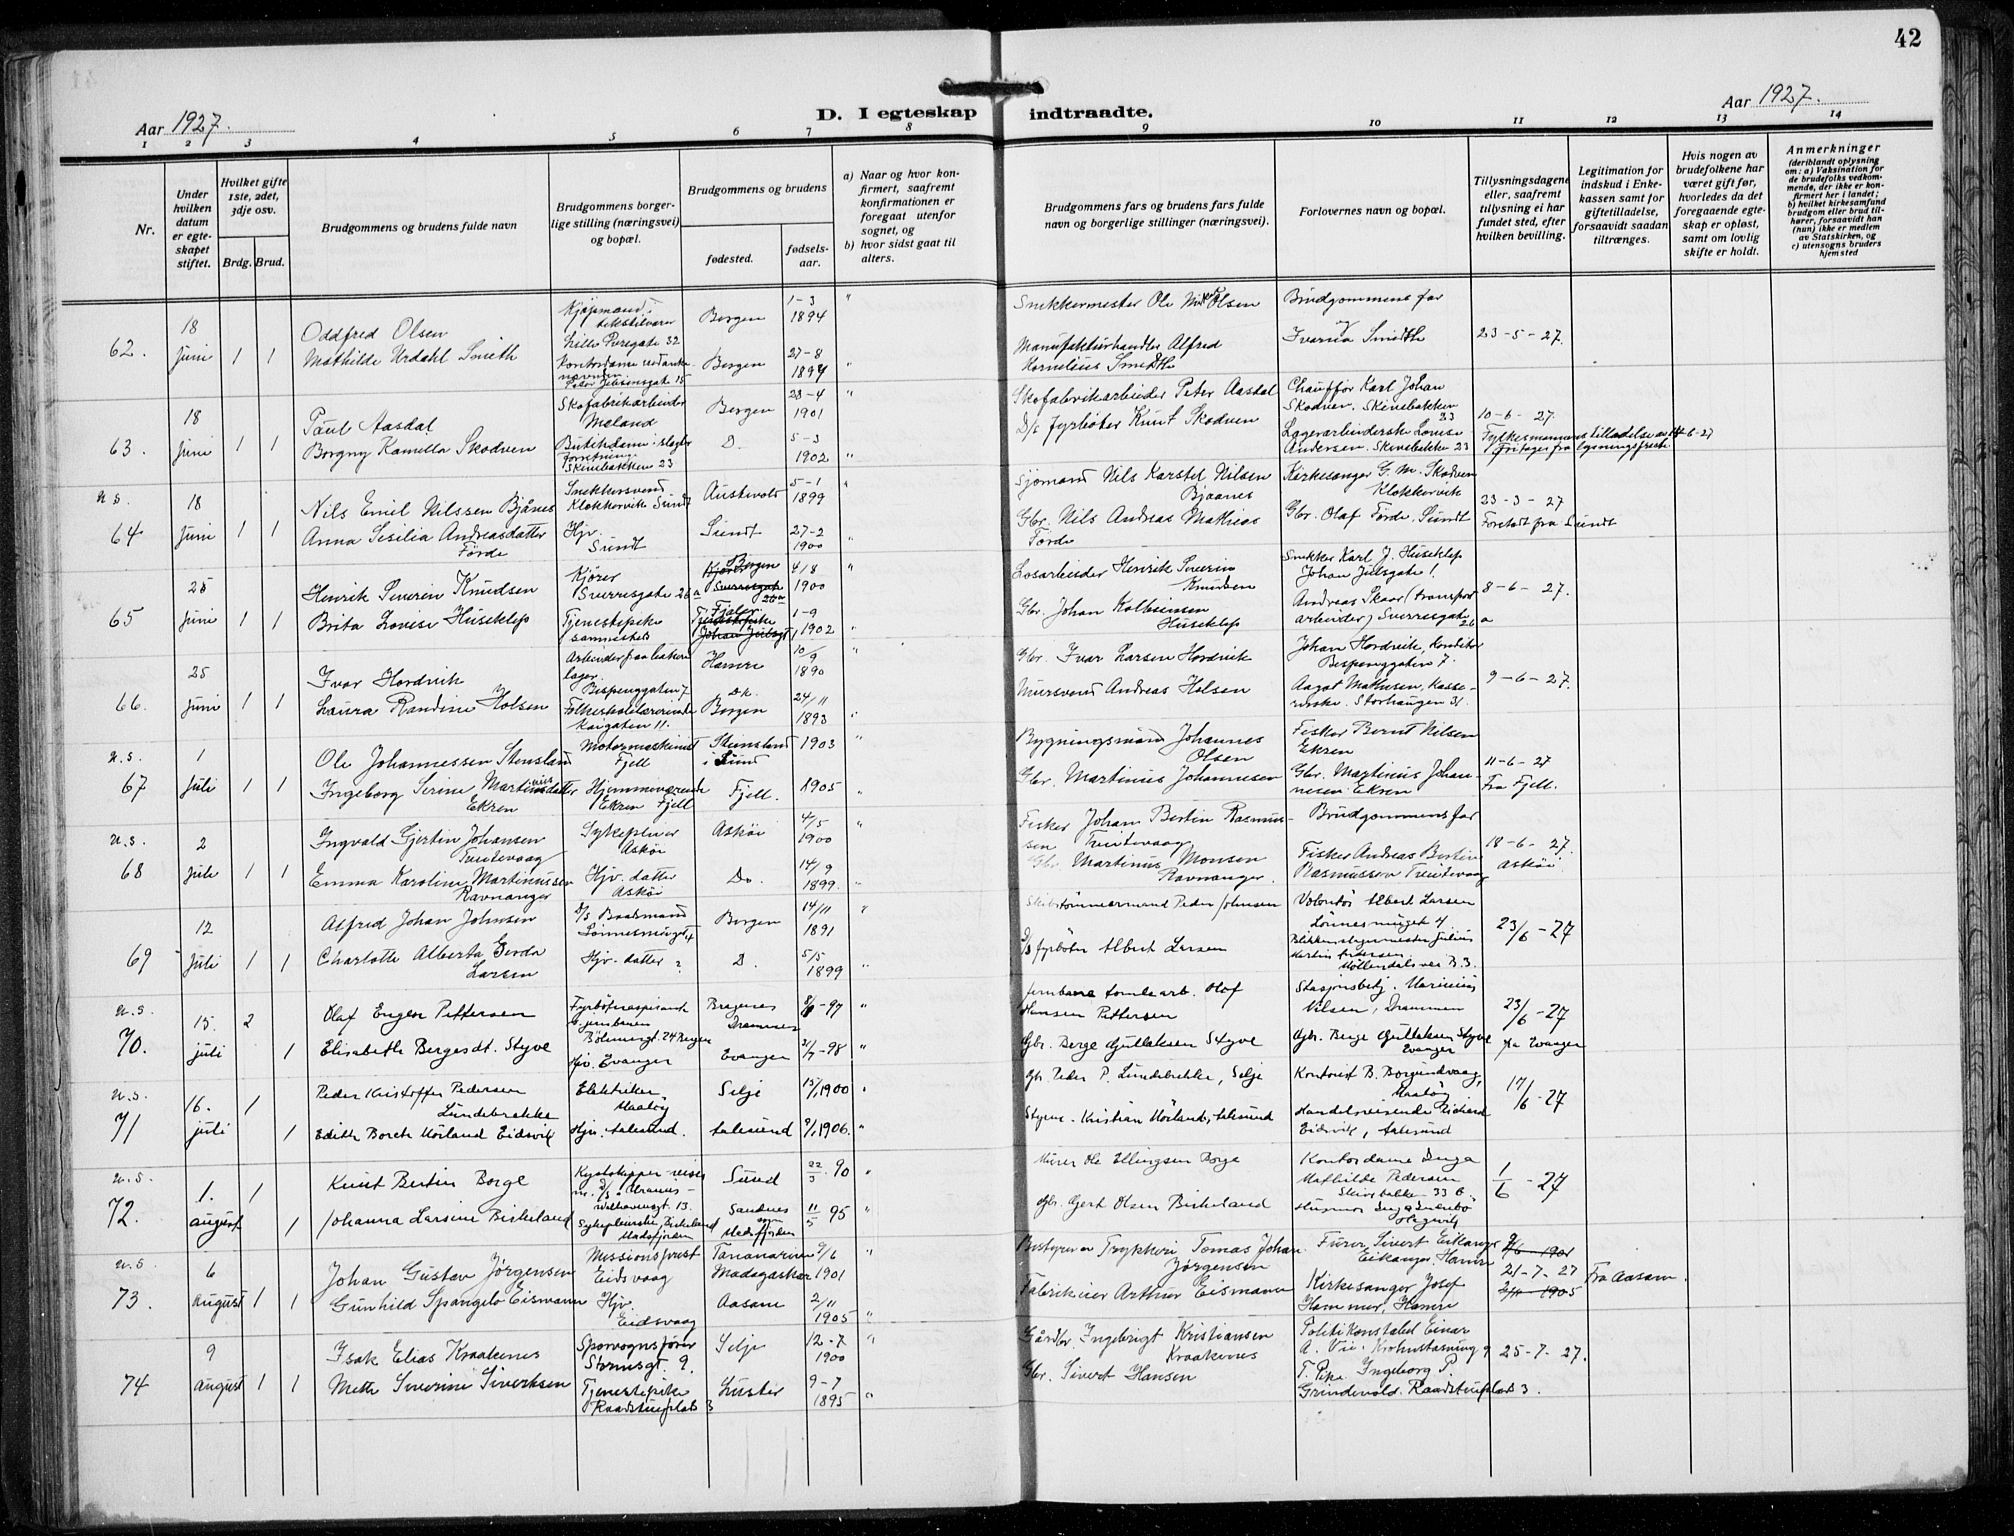 42
Aar 1927.
D. I egteskap indtraadte.
Aar 1927.
1 2 3 4 5 6 7 8 9 10 11 12 13 14
Nr.
Under hvilken datum er egteskapet stiftet.
Hvilket gifte 1ste, 2det, 3dje osv.
Brdg. Brud.
Brudgommens og brudens fulde navn
Brudgommens borgerlige stilling (næringsvei) og bopæl.
Brudgommens og brudens
fødested.
fødselsaar.
a) Naar og hvor konfirmert, saafremt konfirmationen er foregaat utenfor sognet, og
b) hvor sidst gaat til alters.
Brudgommens fars og brudens fars fulde navn og borgerlige stillinger (næringsvei).
Forlovernes navn og bopæl.
Tillysningsdagene eller, saafremt tillysning ei har fundet sted, efter hvilken bevilling.
Legitimation for indskud i Enkekassen samt for giftetilladelse, forsaavidt saadan tiltrænges.
Hvis nogen av brudefolkene har været gift før, hvorledes da det foregaaende egteskap er opløst, samt om lovlig skifte er holdt.
Anmerkninger
(deriblandt oplysning om: a) Vaksination for de brudefolks vedkommende, der ikke er konfirmert her i landet; b) hvilket kirkesamfund brudgom eller brud tilhører, forsaavidt han (hun) ikke er medlem av Statskirken, og c) utensogns bruders hjemsted
62. 18 Juni 1 1
Oddfred Olsen
Mathilde Urdahl Smith
Kjøpmand i tekstilvarer
Lille Øvregate 32
Bergen 1-3 1894
Bergen 27-8 1894
Snekkermester Ole Olsen
Manufakturhandler Alfred Kornelius Smidth
Brudgommens far
Ivarna Smidth
23-5-27.
63. 18 Juni 1 1
Paul Aasdal
Borgny Kamilla Skodven
Skofabrikarbeider
Meland
Skivebakken 23
Bergen 23-4 1901
D. 5-3 1902
Skofabrikarbeider Peter Aasdal
D/s fyrbøter Knut Skodven
Chauffør Karl Johan Skodven. Skivebakken 23
Lagerarbeiderske Lovise Andersen. Skivebakke 23
10-6-27.
Fylkesmannens tilladelse av 14-6-27
Fritages fra lysningsfrist.
u.s.
64 18 Juni 1 1
Nils Emil Nilssen Bjånes
Anna Sisilia Andreasdatter Førde
Snekkersvend
Klokkervik Sund
Hjv. Sundt
Austevold 5-1 1899
Sundt 27-2 1900
Sjømand Nils Karsten Nilsen Bjaanes
Gbr. Nils Andreas Mathias Førde
Kirkesanger G. M. Skodven
Klokkervik
Gbr. Olaf Førde. Sundt
23-3-27
Forstadt fra Sundt
65 25 Juni 1 1
Henrik Severin Knudsen
Brita Lovise Huseklep
Kjører
Sverresgate 26 a
Tjenestepike
sammesteds
Bergen 4/8 1900
Fjaler 1-9 1902
Losarbeider Henrik Severin Knudsen
Gbr. Johan Kolbeinsen Huseklep
Snekker Karl J. Huseklep
Johan Julsgate 1.
Andreas Skaar (transportarbeider) Sverresgate 26 a
8-6-27.
66. 25 Juni 1 1
Ivar Hordvik
Laura Randine Holsen
Bispenggaten 7
Folkeskolelærerinde
Kaigaten 11.
Hamre 10/9 1890
Bergen 24/11 1893
Gbr. Ivar Larsen Hordvik
Mursvend Andreas Holsen
Johan Hordvik, Konditor
Bispenggaten 7.
Aagot Mathisen, Kassererske. Storhaugen 31.
9-6-27.
u.s.
67 1 Juli 1 1
Ole Johannessen Stensland
Ingeborg Serine Martinusdatter Ekren
Motormaskinist
Fjell
Hjemmeværende
Ekren Fjell
Steinsland i Sund 1903
Fjell. 1905
Bygningsmand Johannes Olsen
Gbr. Martinus Johannesen
Fisker Bernt Nilsen Ekren
Gbr. Martinus Johannesen Ekren
11-6-27
Fra Fjell.
u.s.
68 2 Juli 1 1
Ingvald Gjertin Johansen
Emma Karoline Martinussen
Ravnanger
Sykepleier
Askøi
Hjv. datter
Askøi
Askøi 4/5 1900
Do. 14/9 1899.
Fisker Johan Bertin Rasmussen
Gbr. Martinus Monsen
Ravnanger.
Brudgommens far
Fisker Andreas Bertin Rasmussen
18-6-27.
Askøi
69 12 Juli 1 1
Alfred Johan Johnsen
Charlotte Alberta Gerda Larsen
D/S Baatsmand
Hjv. datter
Bergen 14/11 1891
D. 5/5 1899
Skibstømmermand Peder Johnsen
D/s fyrbøter Albert Larsen
Volontør Albert Larsen
Blikkenslagermester Julius Martin Andersen
Møllendalsvei B. 3.
23/6-27
u.s.
70. 15. juli 2 1
Olaf Engler Pettersen
Elisabeth Bergesdt. Styve
Fyrbøteraspirant
Hjv. Evanger
Bragenes Drammen
Evanger
Jernbane tomtearb. Olof Hansen Pettersen
Gbr. Berge Gullaksen Styve
Stasjonsbetj. Marinius Nilsen, Drammen
Gbr. Berge Gullaksen Styve
Evanger
23/6-27
fra Evanger
u.s.
71 16. juli 1 1
Peder Kristoffer Pedersen Lundebrekke
Edith Borch Mörland Eidsvik
Elektriker,
Maaløy
Hjv. Aalesund.
Selje 15/1 1900
Aalesund 9/1 1906.
Gbr. Peder P. Lundebrekke, Selje
Styrm. Kristian Mörland, Aalesund
Kontorist B. Borgundvaag, Maaløy
Handelsreisende Richard Eidsvik, Aalesund
17/6-27
u.s.
72. 1. august 1 1
Knut Bertin Borge
Johanna Larsine Birkeland
Sykepleierske, Birkeland
Sund 22/3 90
Sandnes 11/5 95
Murer Ole Ellingsen Borge
Gbr. Gert Olsen Birkeland
Kontordame Inga Mathilde Pedersen
Skivebakke. 33 B.
1/6-27
u.s.
73. 6 August 1 1
Johan Gustav Jørgensen
Gunhild Spangelo Eismann
Missionsprest
Eidsvaag
Hjv.
Eidsvaag
Tananarivo Madagaskar 9/6 1901
Aasane 2/11 1905
Bestyrer av Trykkeri Tomas Johan Jørgensen
Fabrikeier Arthur Eismann
Furer Sivert Eikanger
Eikanger, Hamre
Kirkesanger Josef Hammer, Hamre
9/6-1901
21-7-27
2/11-1905
Fra Aasane.
74 9 August 1 1
Isak Elias Kraakenes
Mette Severine Sivertsen
Sporvognsfører
Stormsgt. 9.
Tjenestepike
Raadstuplads 3
Selje 12-7 1900
Luster 9-7 1895
Gårdbr. Ingebrigt Kristiansen Kraakenes
Gbr. Sivert Hansen
Politikonstabel Einar A. Vie. Krohnstasning 9
T. Pike Ingeborg P. Grindevold. Raadstuplads 3.
25-7-27.